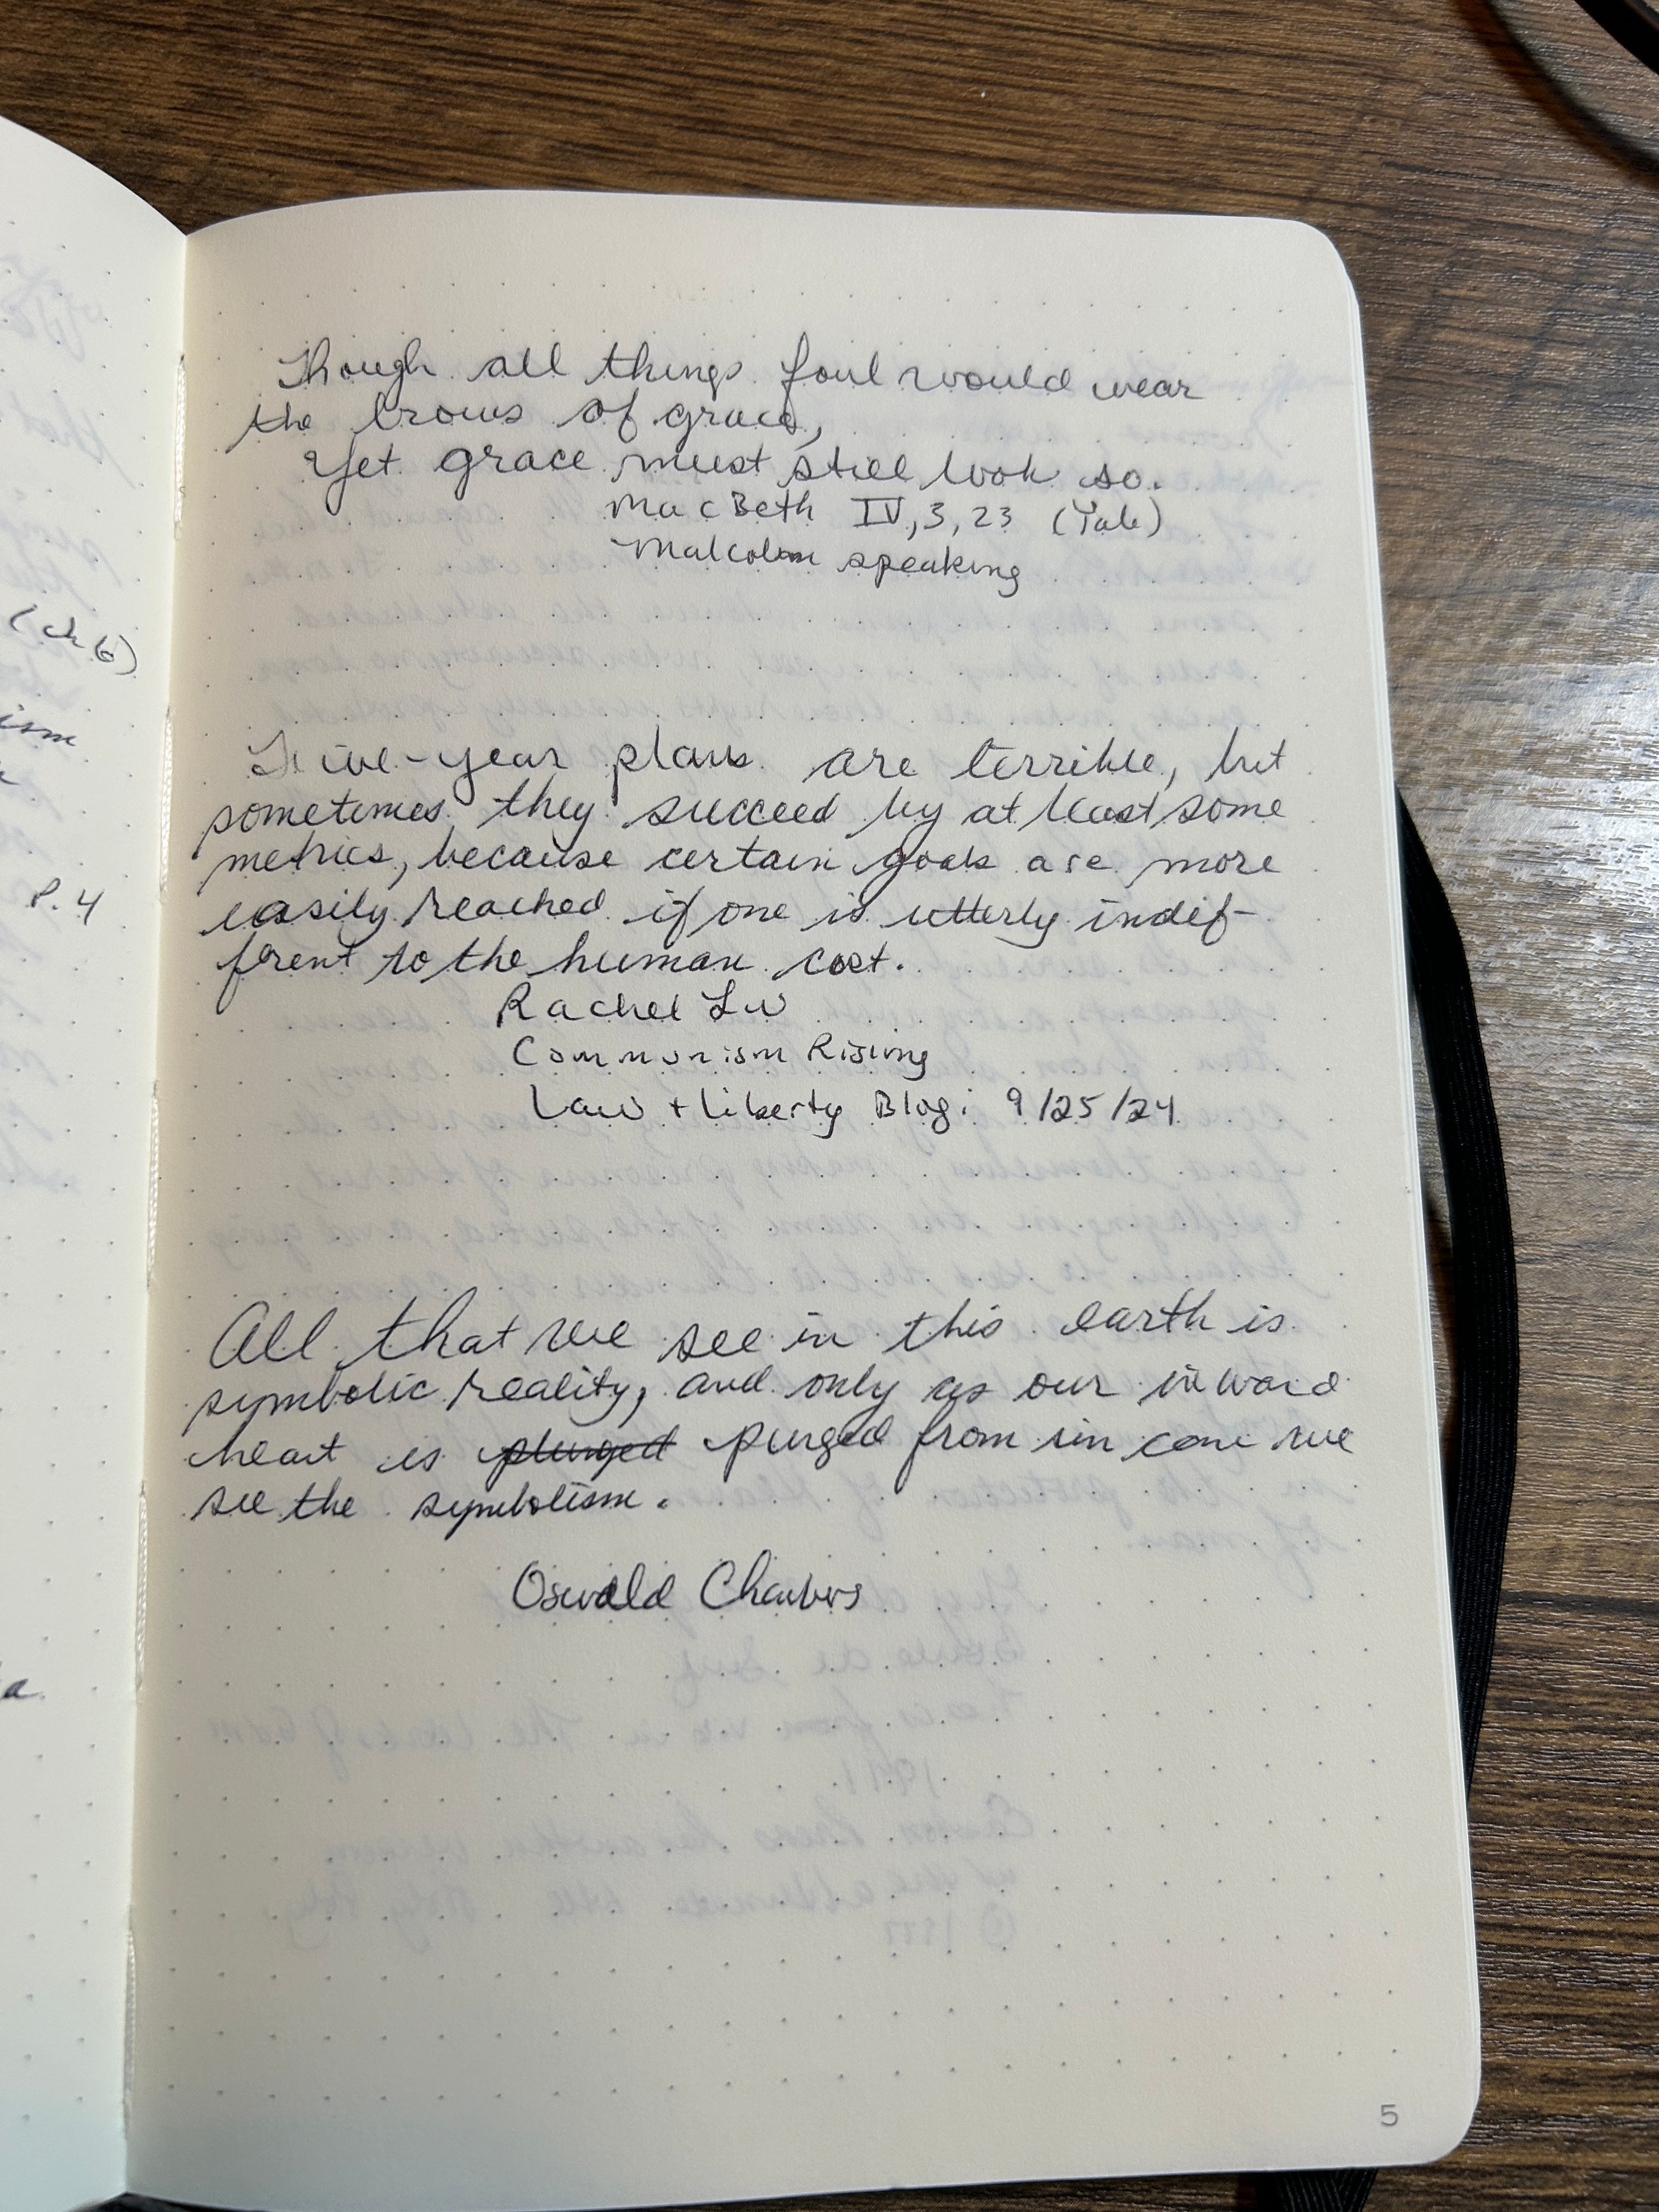 (ch 6)
ism
P. 4
a.
Though all things foul would wear
the brows of grace,
Yet grace must still look so.
MacBeth IV, 3, 23 (Yale)
Malcolm speaking
Five-year plans are terrible, but
sometimes they succeed by at least some
metrics, because certain goals are more
easily reached if one is utterly indif-
ferent to the human cost.
Rachel Lu
Communism Rising
Law + Liberty Blog: 9/25/24
All that we see in this earth is
symbolic reality, and only as our inward
heart is plunged purged from sin can we
see the symbolism.
Oswald Chambers
5